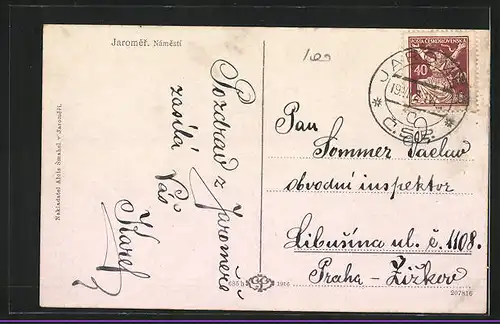 Jaroměř. Náměstí
Nakladatel Alois Šmahel v Jaroměři.
Pozdrav z Jaroměře
zasílá Váš
Karel
POŠTA ČESKOSLOVENSKÁ
40
Č.S.P.
Pan
Sommer Václav
obvodní inspektor
Libušina ul. č. 1108.
Praha - Žižkov
1916
207816